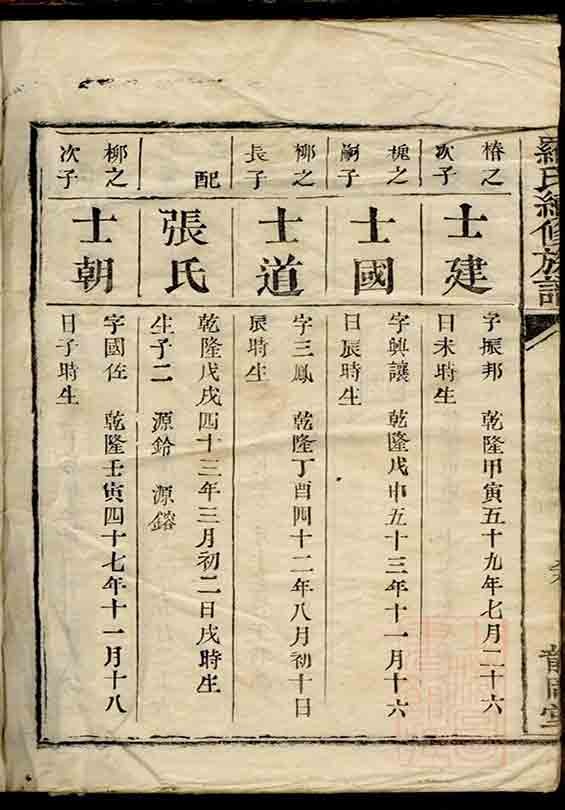 羅氏續修族譜
椿之
次子
士建
字振邦 乾隆甲寅五十九年七月二十六
日未時生
槐之
嗣子
士國
字興讓 乾隆戊申五十三年十一月十六
日辰時生
柳之
長子
士道
字三鳳 乾隆丁酉四十二年八月初十日
辰時生
配
張氏
乾隆戊戌四十三年三月初二日戌時生
生子二 源鈴 源鎔
柳之
次子
士朝
字國佐 乾隆壬寅四十七年十一月十八
日子時生